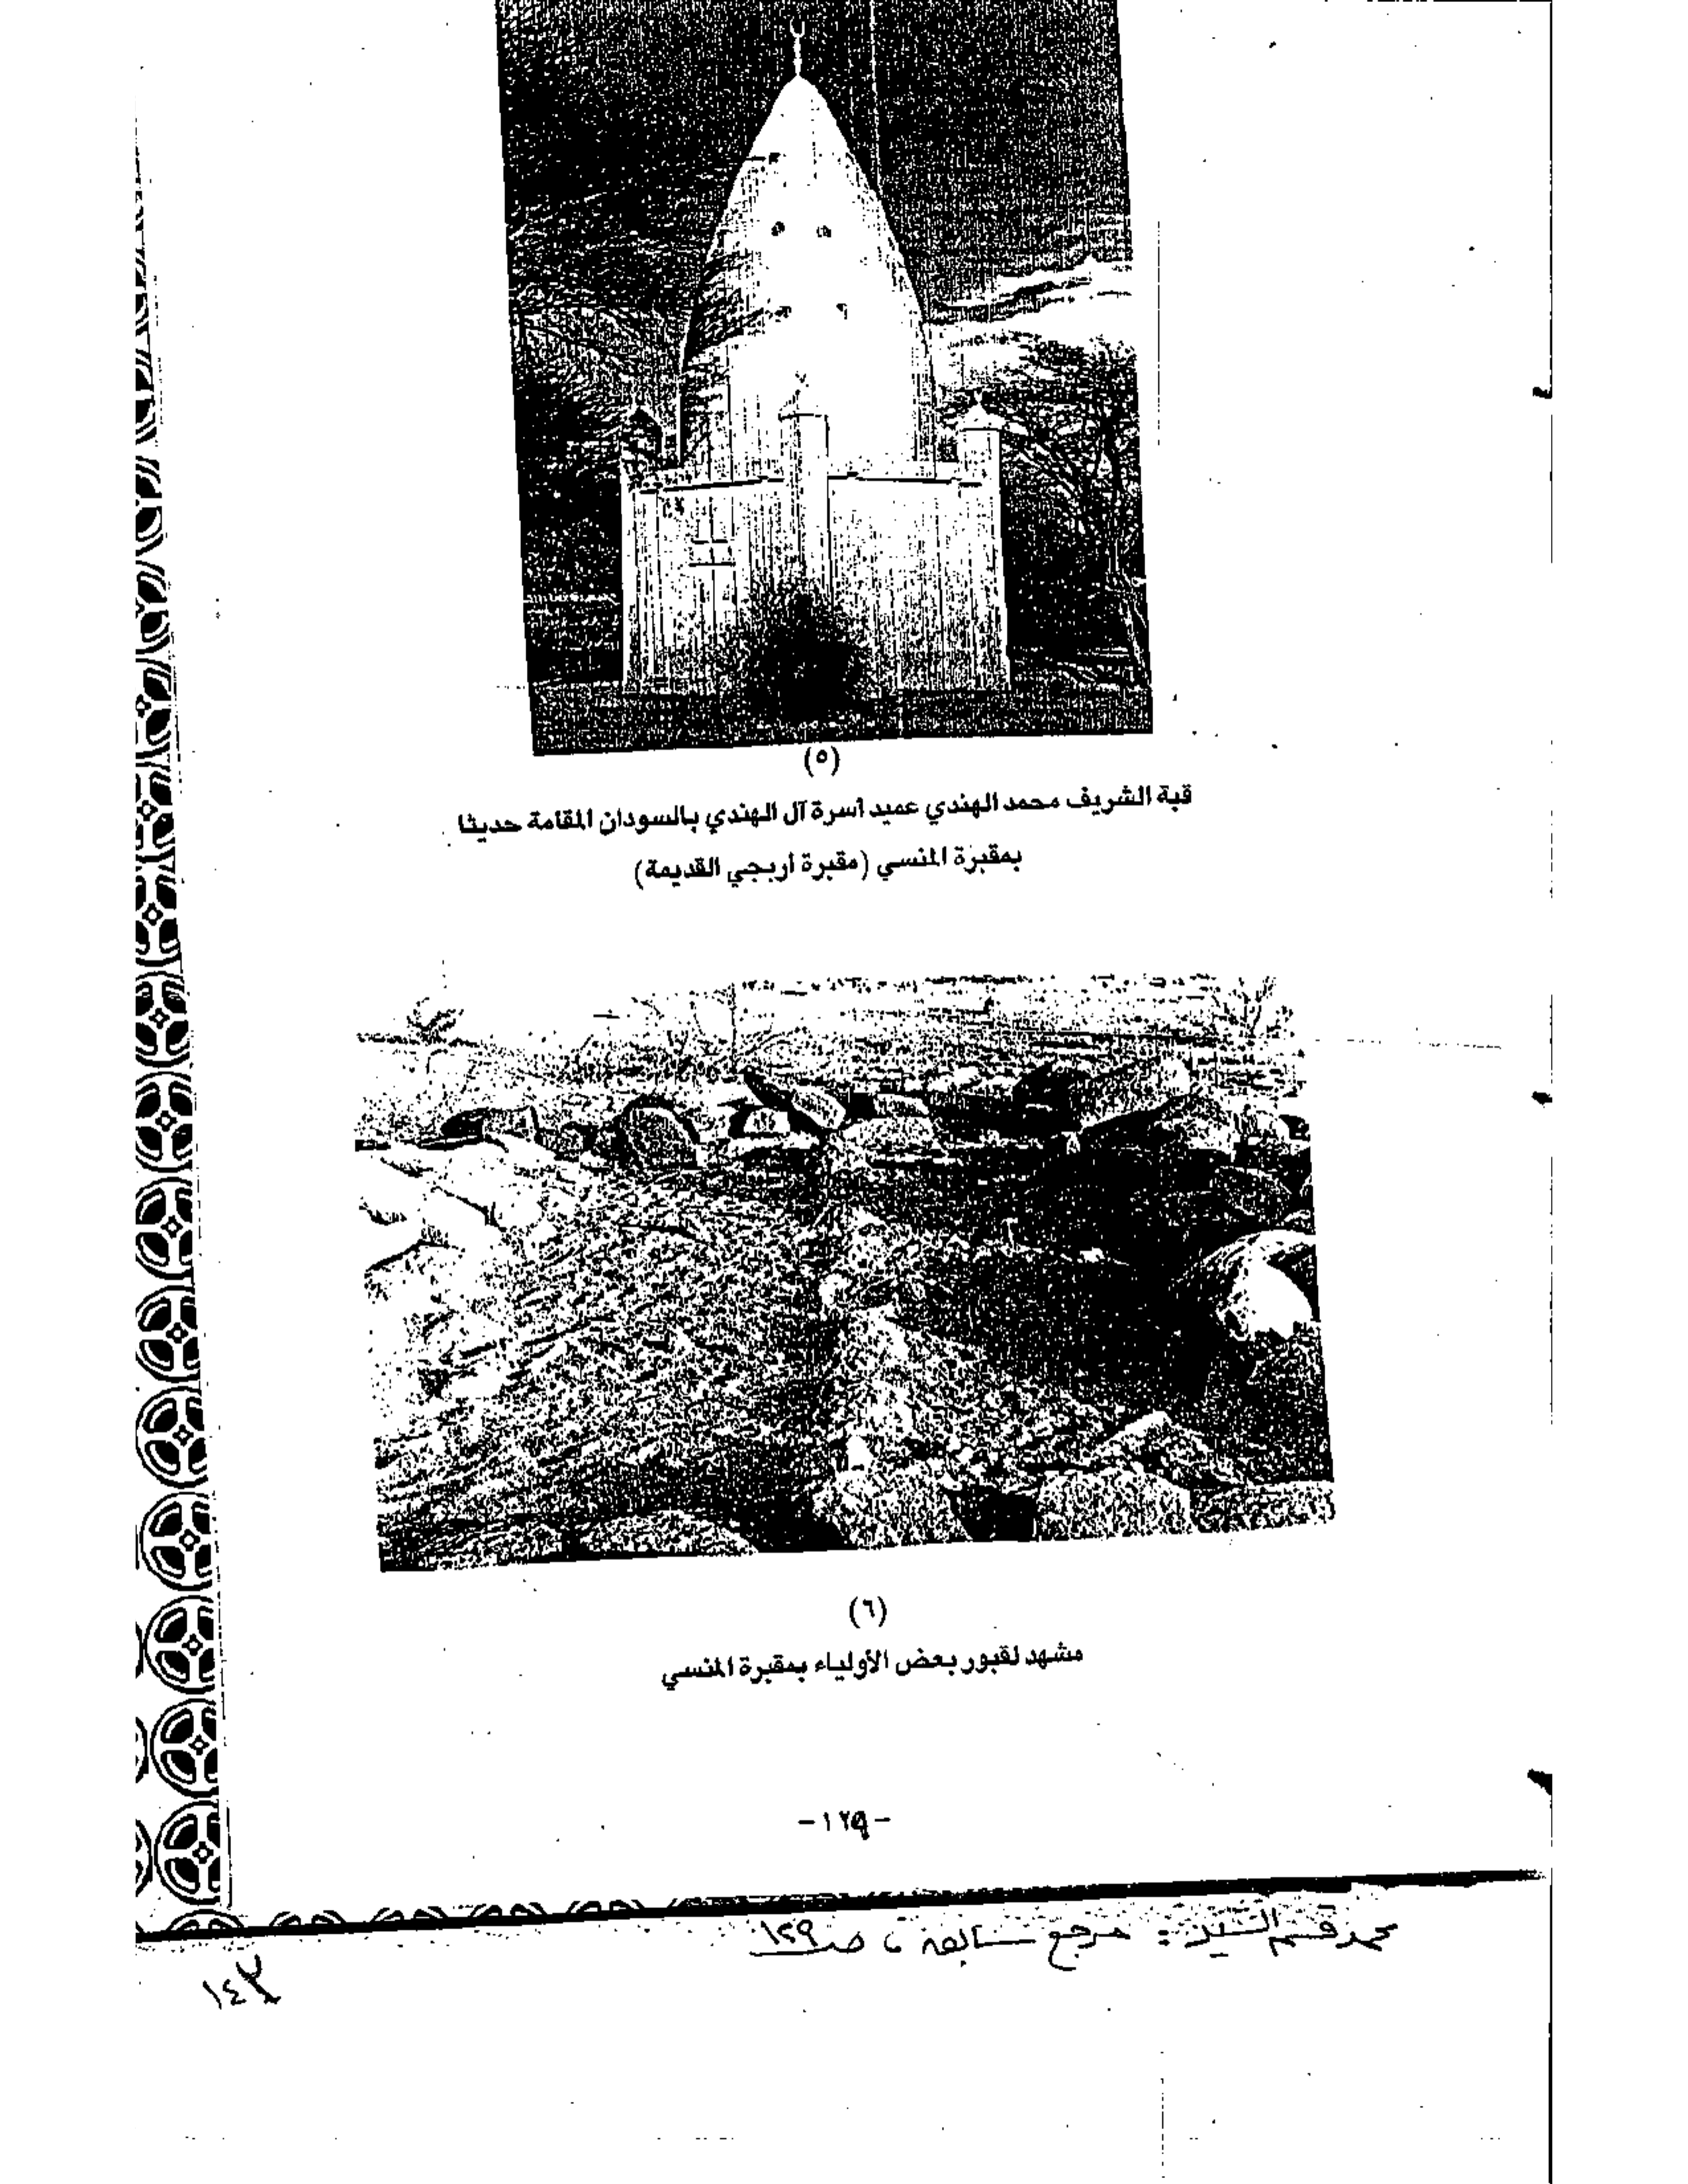 (٥)
قبة الشريف محمد الهندي عميد أسرة آل الهندي بالسودان المقامة حديثا
بمقبرة المنسي (مقبرة أربجي القديمة)
(٦)
مشهد لقبور بعض الأولياء بمقبرة المنسي
-١٢٩-
محمد قسم السيد : مرجع سابق ، ص ١٢٩